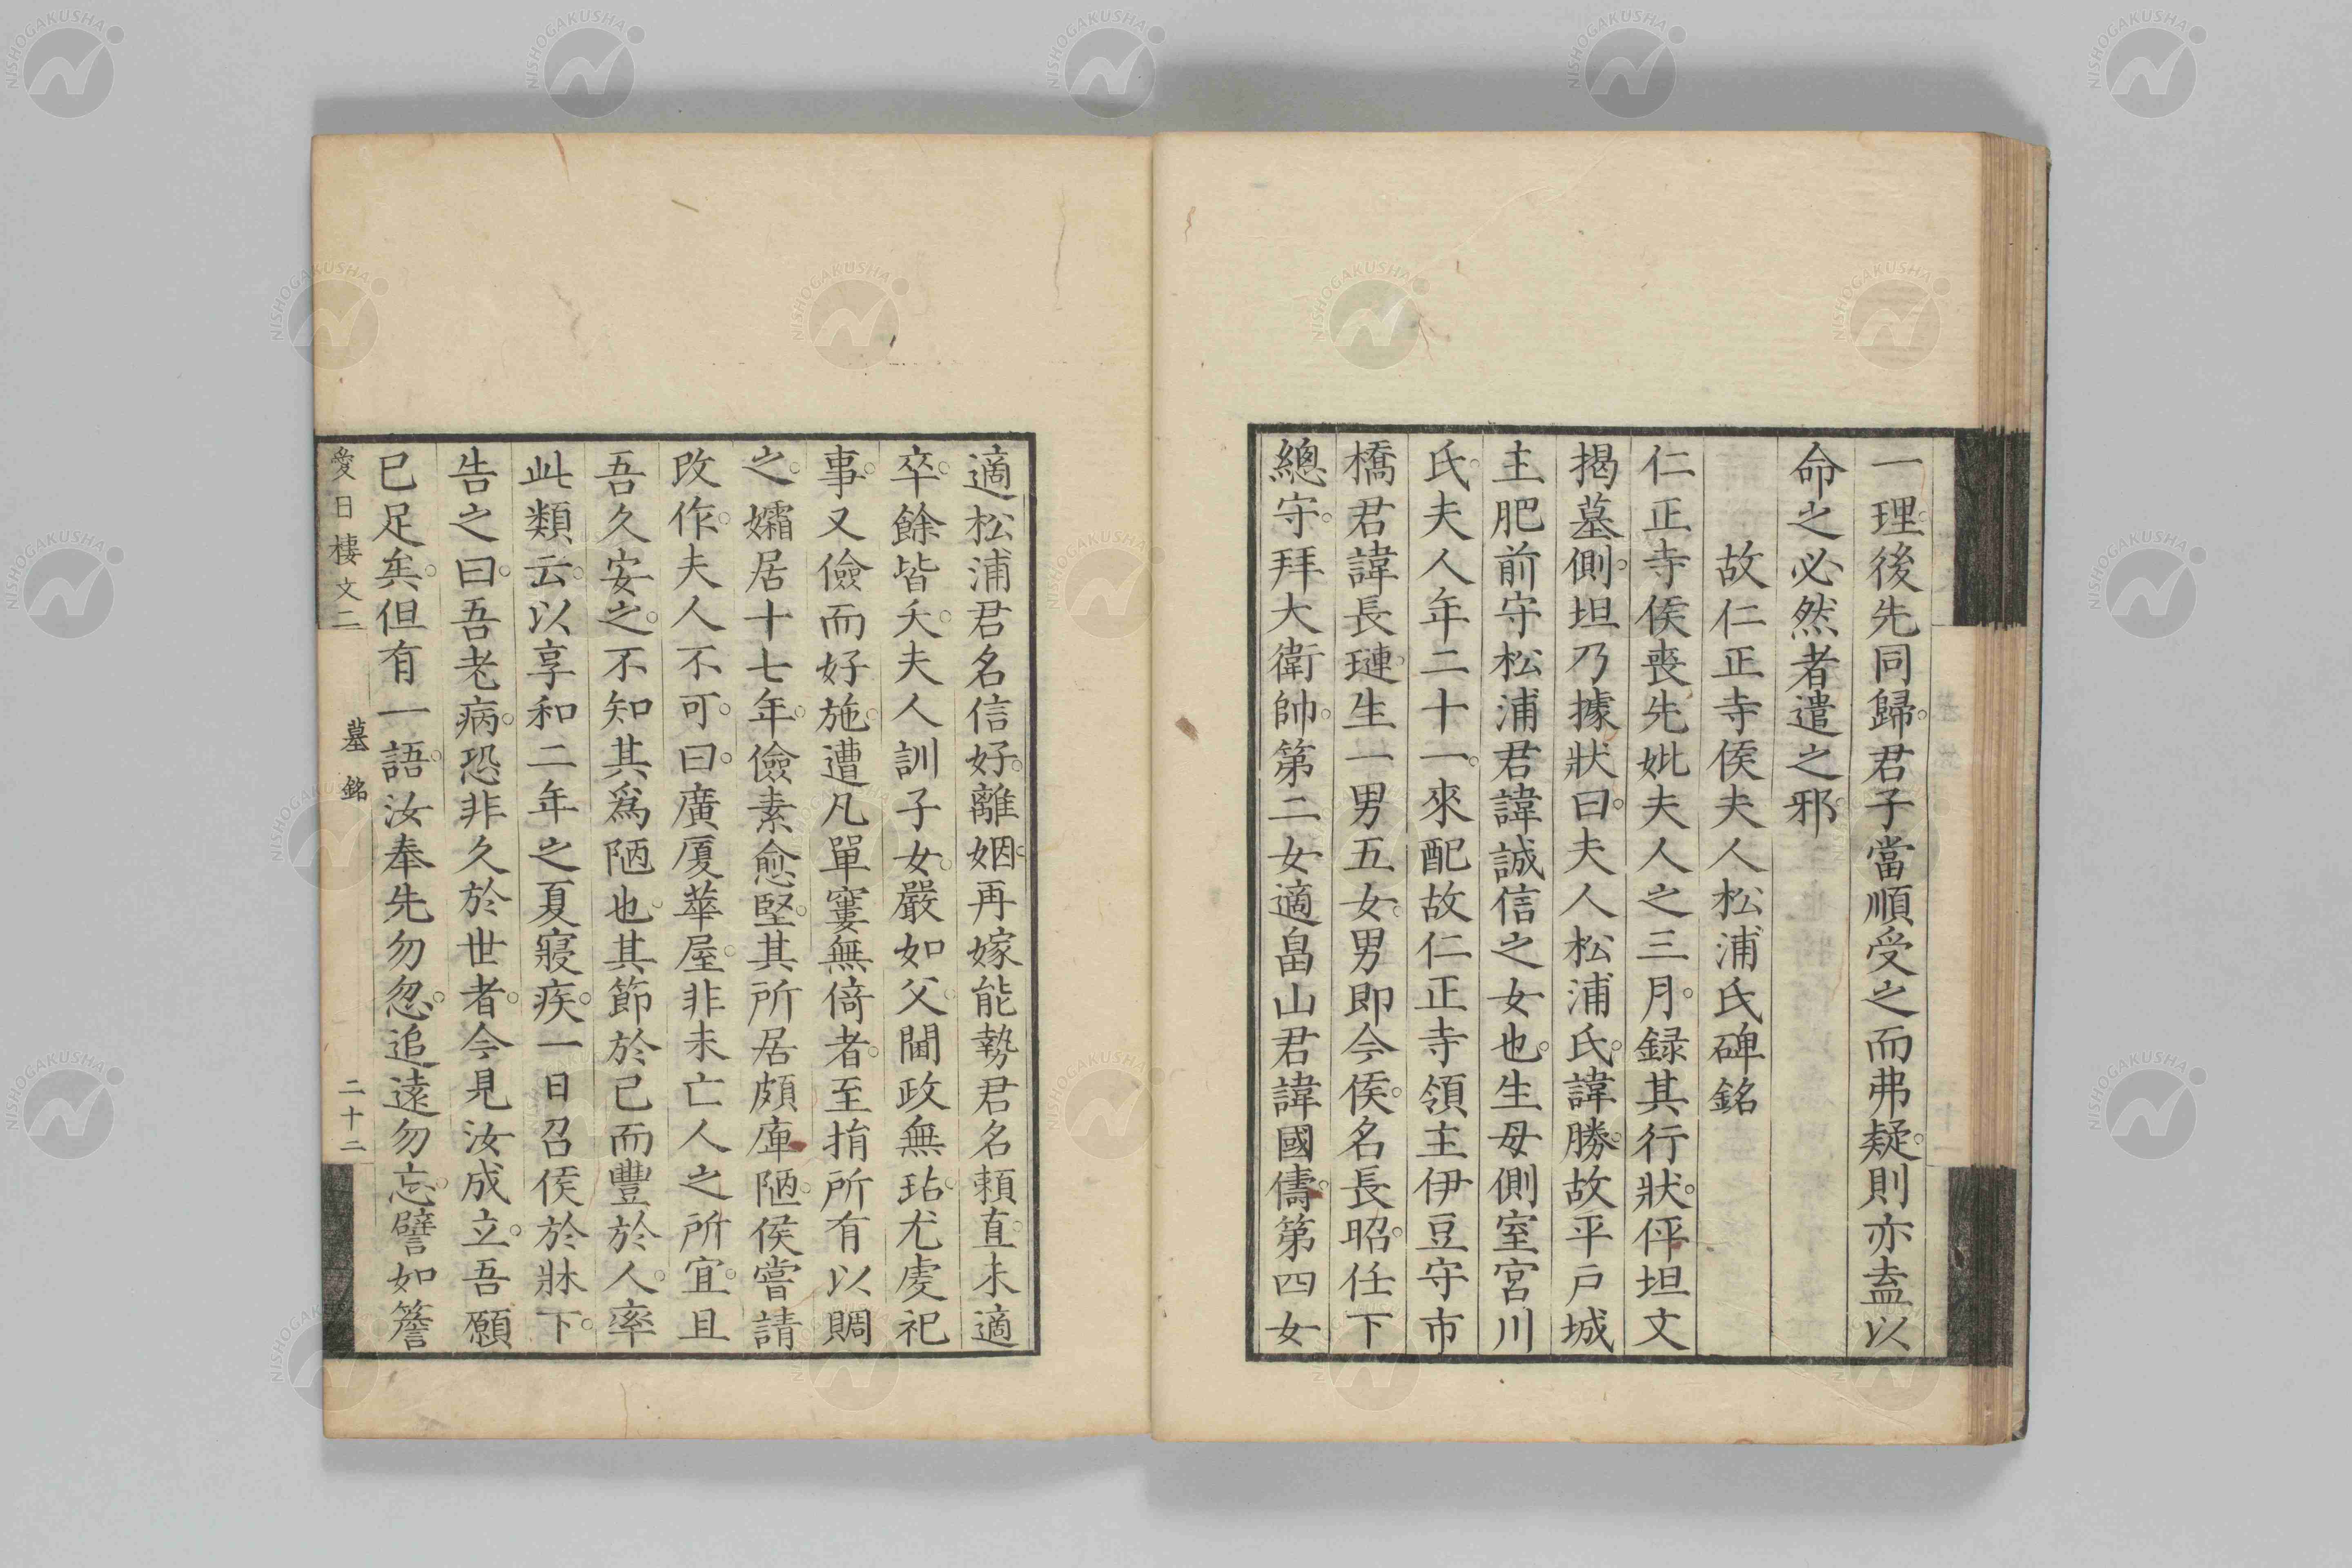 一理後先同歸。君子當順受之而弗疑。則亦盍以
命之必然者遣之邪。
故仁正寺侯夫人松浦氏碑銘
仁正寺侯喪先妣夫人之三月。録其行狀。伻坦文
揭墓側。坦乃據狀曰。夫人松浦氏。諱勝。故平戸城
主肥前守松浦君諱誠信之女也。生母側室宮川
氏。夫人年二十一。來配故仁正寺領主伊豆守市
橋君諱長璉。生一男五女。男即今侯。名長昭。任下
總守。拜大衛帥。第二女適畠山君諱國儔。第四女
適松浦君名信好。離姻。再嫁能勢君名頼直。未適
卒。餘皆夭。夫人訓子女。嚴如父。閫政無玷。尤虔祀
事。又儉而好施。遭凡單窶無倚者。至捐所有以賙
之。孀居十七年。儉素愈堅。其所居頗庳陋。侯嘗請
改作。夫人不可。曰。廣厦華屋。非未亡人之所宜。且
吾久安之。不知其爲陋也。其節於己而豐於人。率
此類云。以享和二年之夏寢疾。一日召侯於牀下。
告之曰。吾老病。恐非久於世者。今見汝成立。吾願
已足矣。但有一語。汝奉先勿忽。追遠勿忘。譬如簷
愛日樓文二
墓銘
二十二
NISHOGAKUSHA